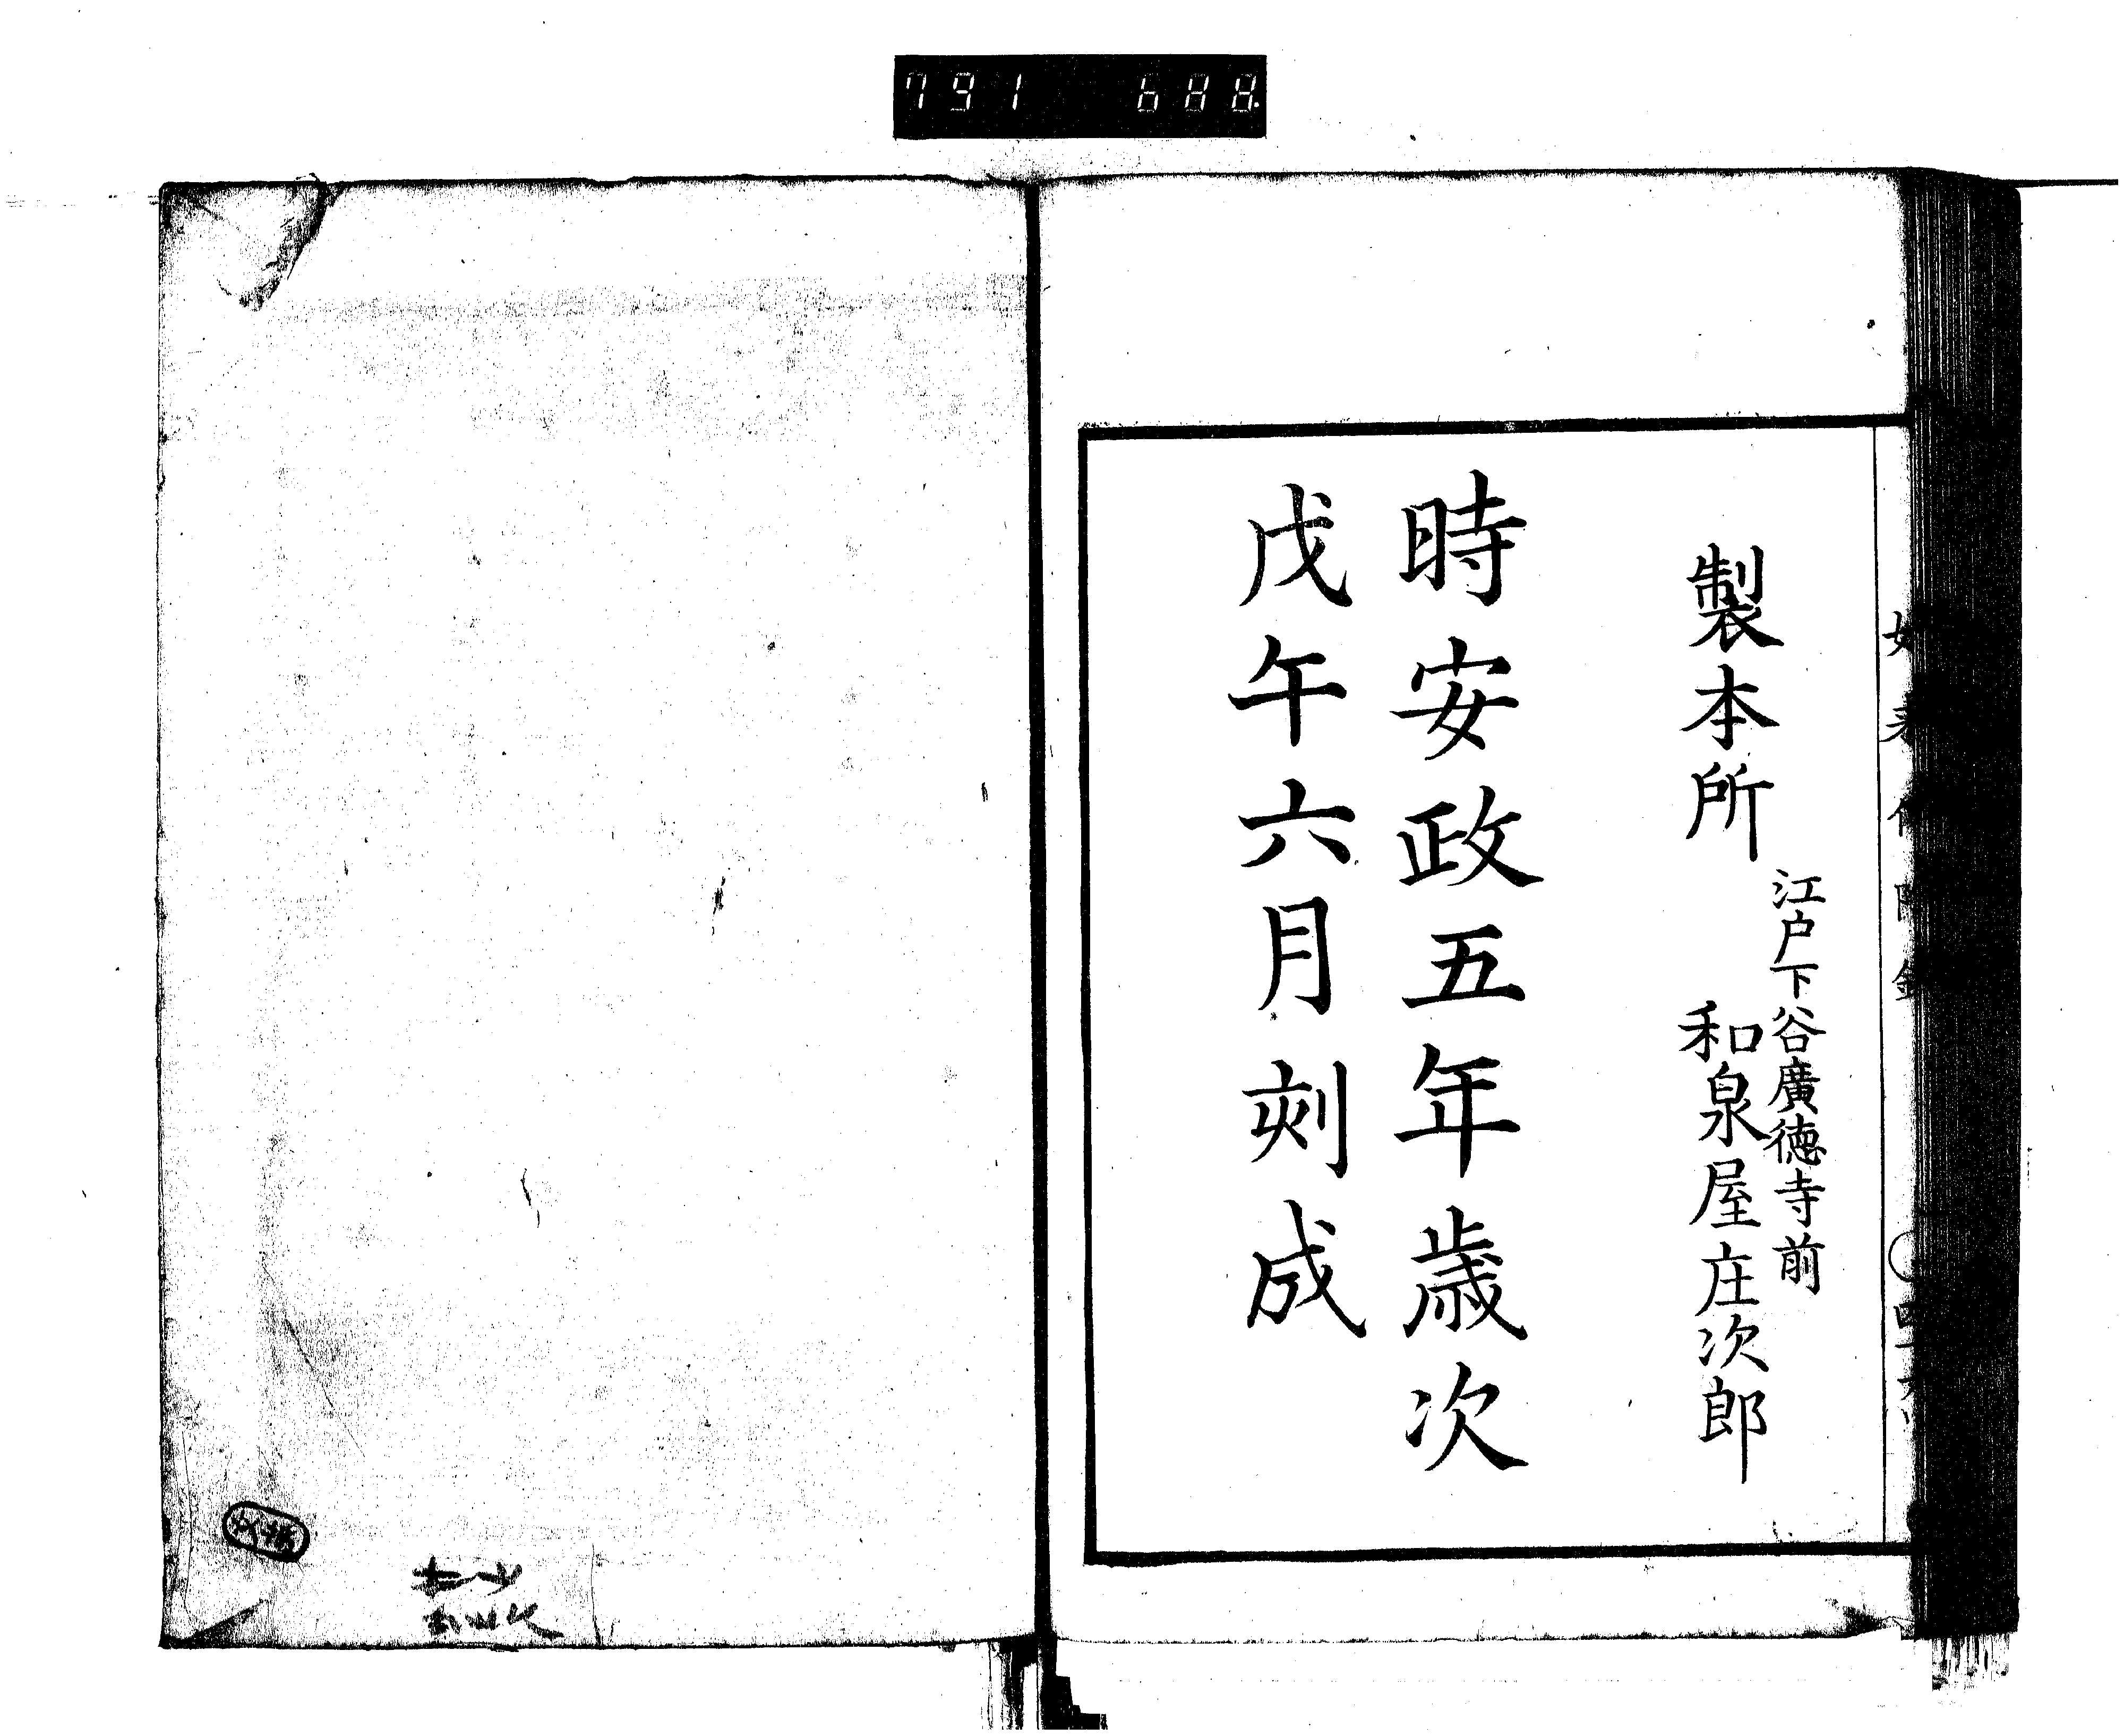 791 688
製本所
江戸下谷廣徳寺前
和泉屋庄次郎
時安政五年歳次
戊午六月刻成